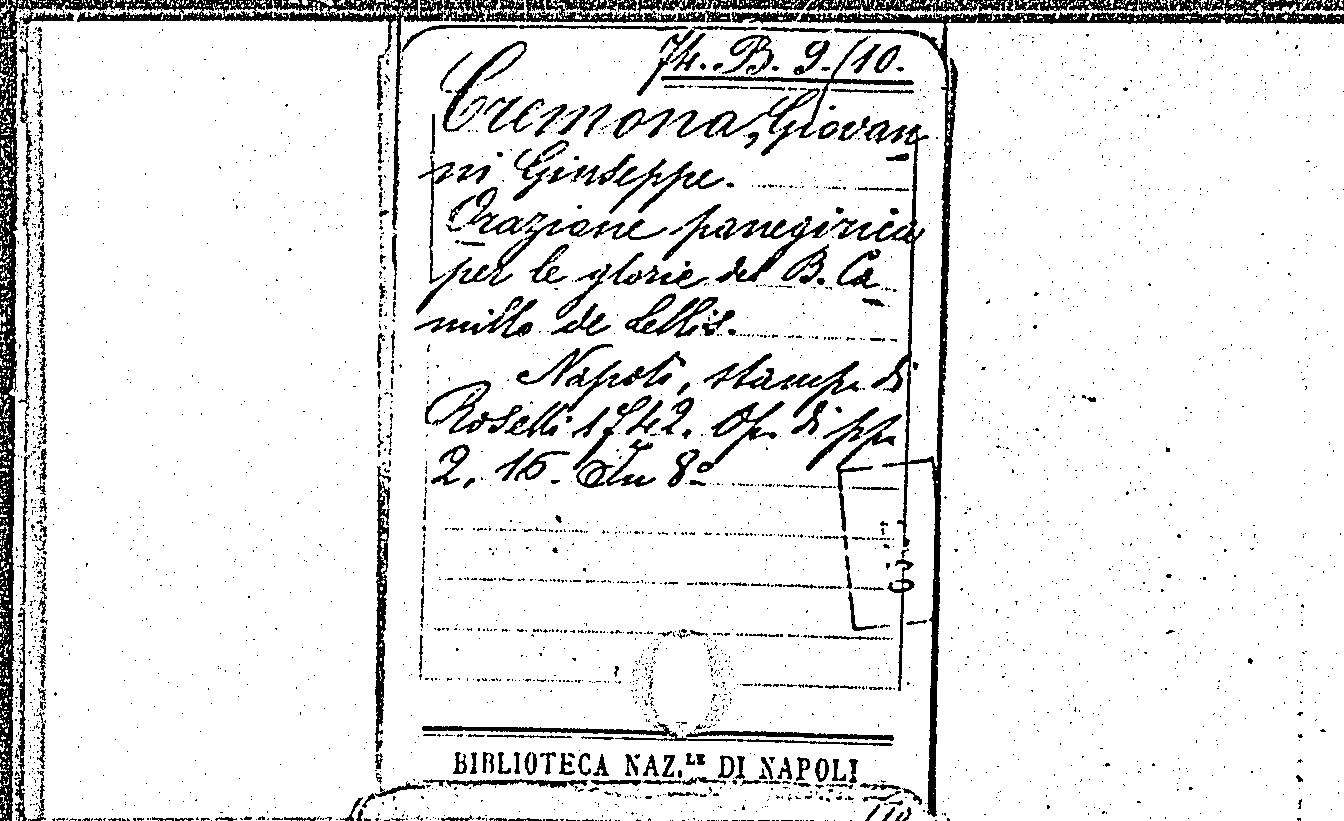 74. B. 9./10.
Cremona, Giovan
ni Giuseppe.
Orazione panegirica
per le glorie del B. Ca
millo de Lellis.
Napoli, stamp. di
Roselli 1742. Op. di pp.
2, 16. In 8º
BIBLIOTECA NAZ.LE DI NAPOLI